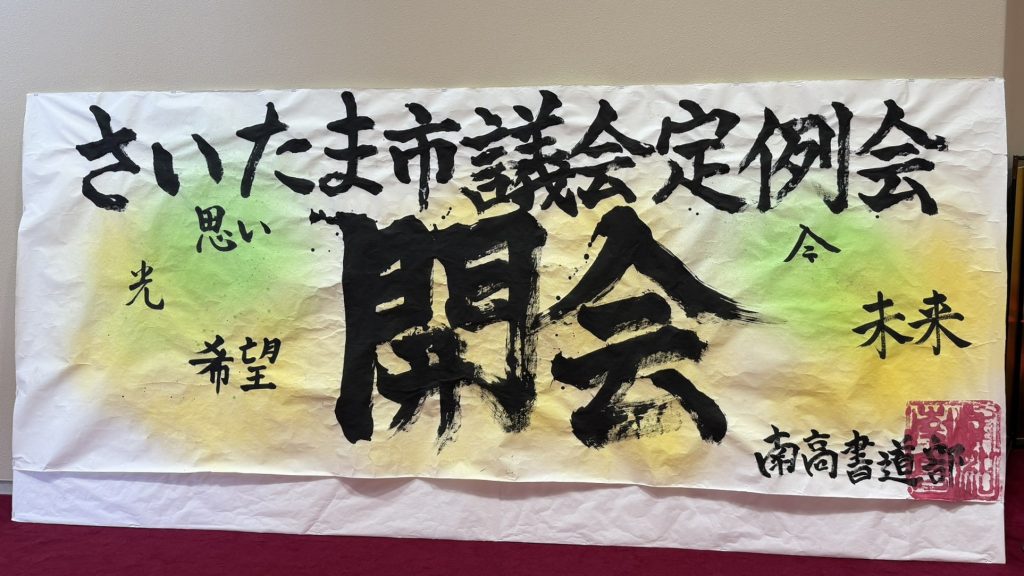 さいたま市議会定例会
開会
思い
光
希望
今
未来
南高書道部